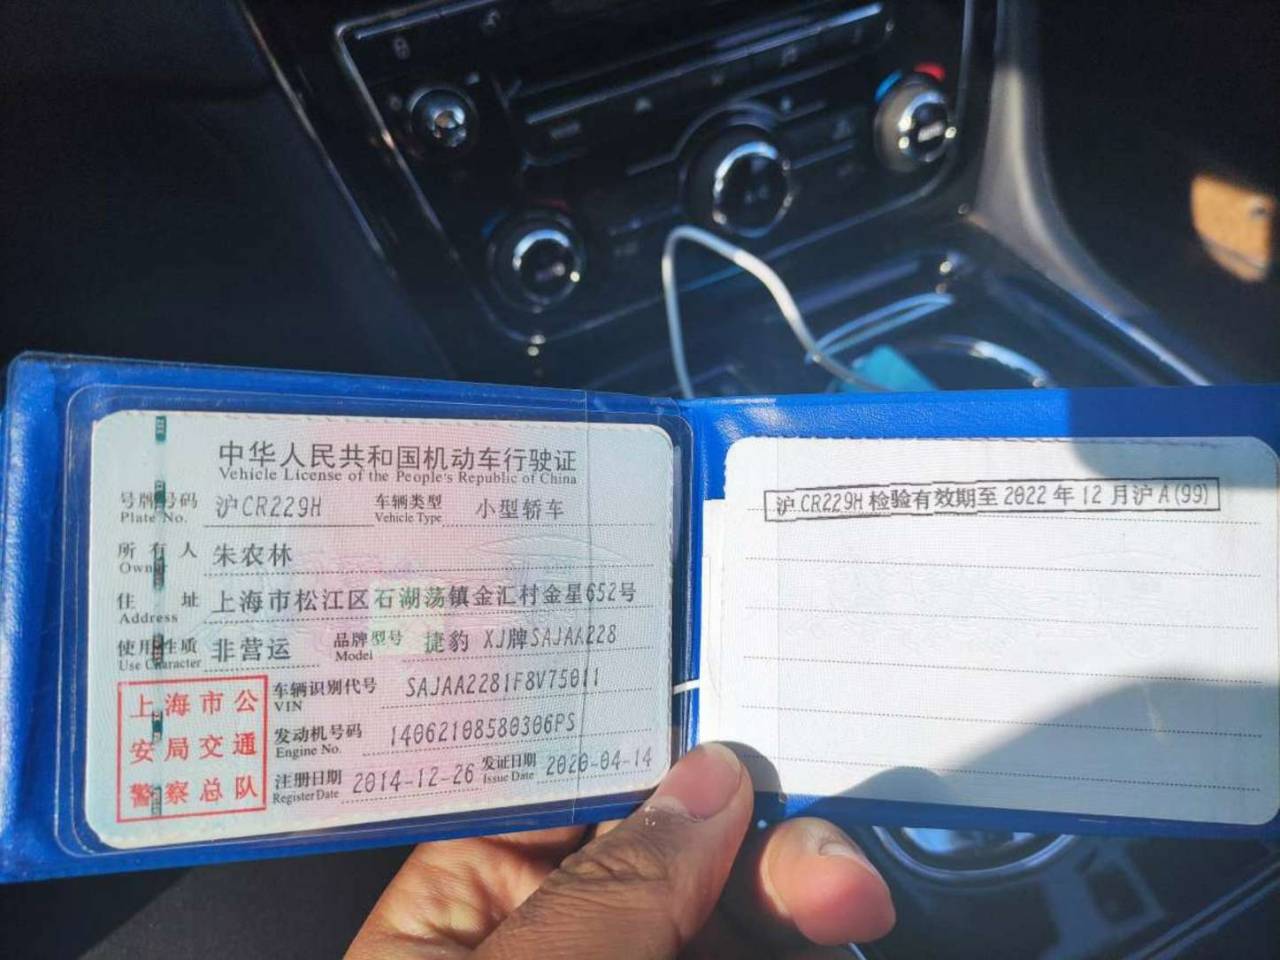 中华人民共和国机动车行驶证
Vehicle License of the People's Republic of China
号牌号码 沪CR229H 车辆类型 小型轿车
Plate No. Vehicle Type
所有人 朱农林
Owner
住址 上海市松江区石湖荡镇金汇村金星652号
Address
使用性质 非营运 品牌型号 捷豹 XJ牌SAJAA228
Use Character Model
车辆识别代号 SAJAA2281F8V75011
VIN
发动机号码 14062108580306PS
Engine No.
注册日期 2014-12-26 发证日期 2020-04-14
Register Date Issue Date
上海市公
安局交通
警察总队
沪CR229H 检验有效期至2022年12月沪A(99)